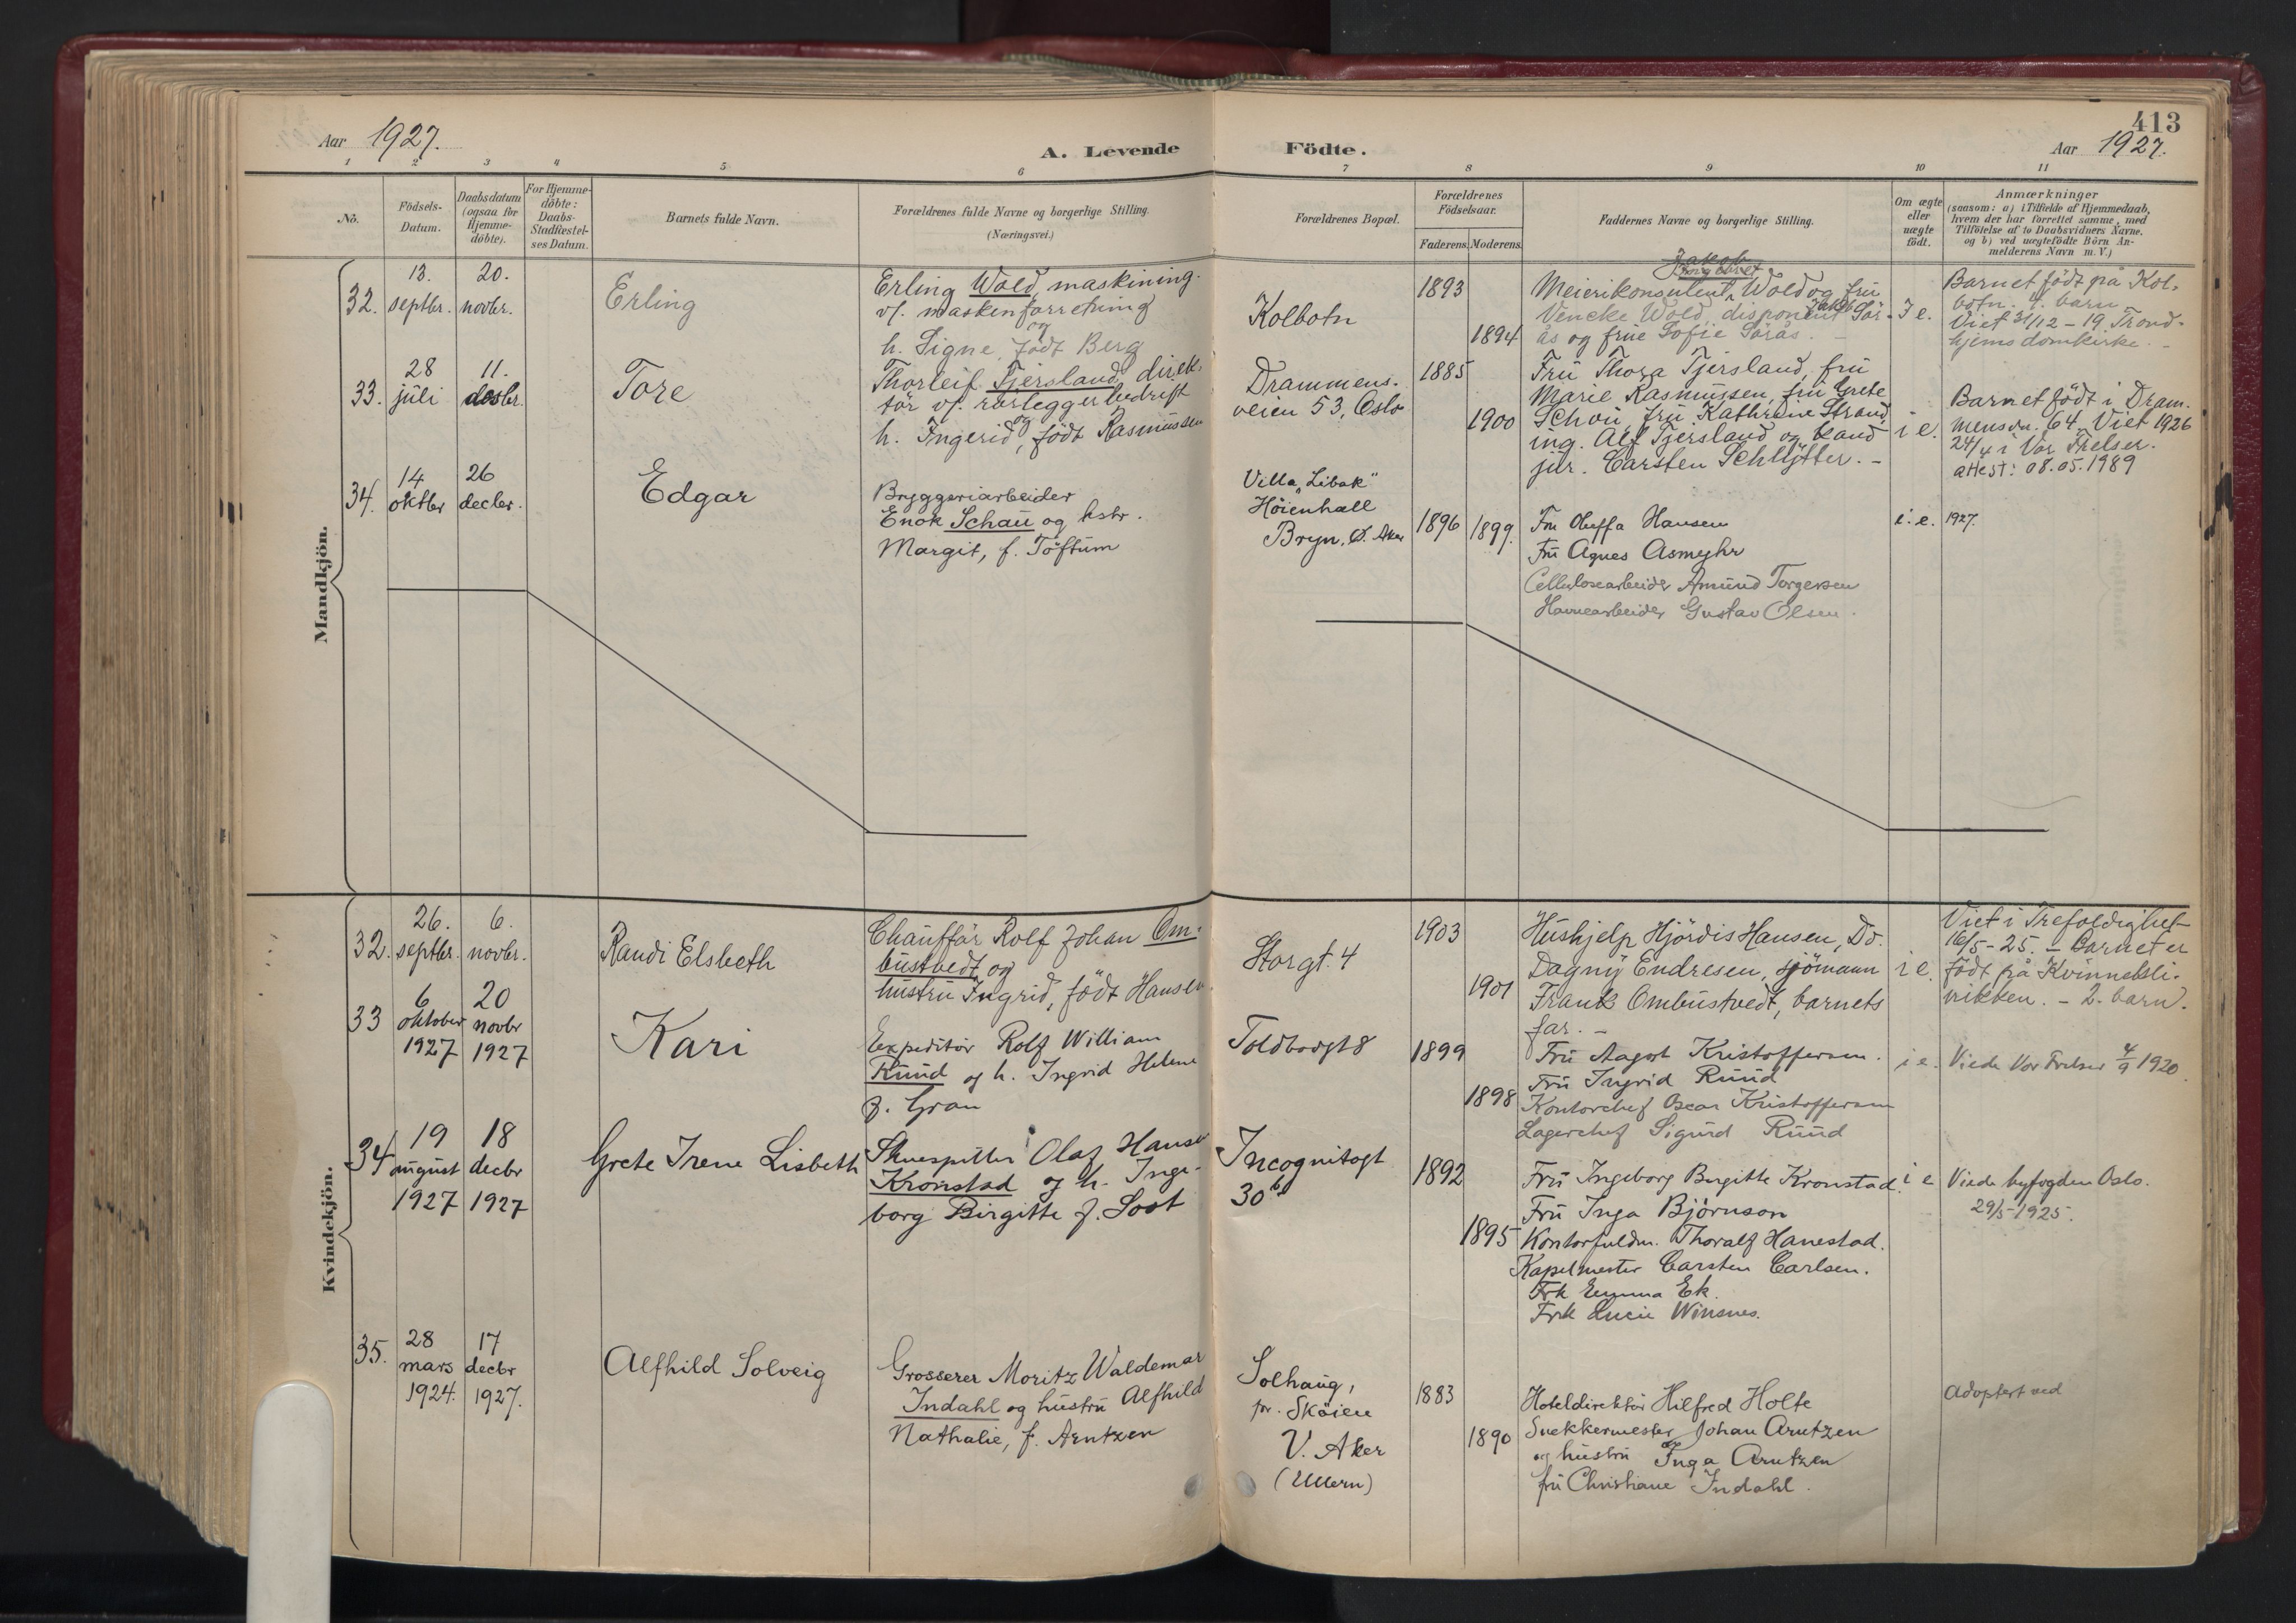 413
Aar 1927.
A. Levende Födte.
Aar 1927.
1 2 3 4 5 6 7 8 9 10 11
No.
Födsels-
Datum.
Daabsdatum
(ogsaa for
Hjemme-
döbte).
For Hjemme-
döbte:
Daabs-
Stadfæstel-
ses Datum.
Barnets fulde Navn.
Forældrenes fulde Navne og borgerlige Stilling.
(Næringsvei.)
Forældrenes Bopæl.
Forældrenes
Födselsaar.
Faderens. Moderens.
Faddernes Navne og borgerlige Stilling.
Om ægte
eller
uægte
födt.
Anmærkninger
(saasom: a) i Tilfælde af Hjemmedaab,
hvem der har forrettet samme, med
Tilföielse af to Daabsvidners Navne.
og b) ved uægtefödte Börn An-
melderens Navn m. V.)
Mandkjön.
32.
13.
septbr.
20.
novbr.
Erling
Erling Wold, maskining.
v/. maskinforretning
og
h. Signe, född Berg
Kolbotn
1893
1894
Jakob
Meierikonsulent Wold og fru
Vencke Wold, disponent Jakob Sör-
ås og frue Sofie Sörås. -
I e.
Barnet födt på Kol-
botn. 4. barn
Viet 31/12 - 19 Trond-
hjems domkirke. -
33.
28
juli
11.
desbr.
Tore
Thorleif Tjersland, direk-
tör v/. rörleggerbedrift
og
h. Ingerid, födt Rasmussen
Drammens-
veien 53, Oslo
1885
1900
Fru Thora Tjersland, fru
Marie Rasmussen, fru Grete
Schou, fru Kathrine Strand,
ing. Alf Tjersland og kand
jur. Carsten Schlytter. -
i e.
Barnet födt i Dram-
mensvn. 64. Viet 1926
24/4 i Vor Frelser.
attest: 08.05.1989
34.
14
oktbr
26
decbr.
Edgar
Bryggeriarbeider
Enok Schau og hstr.
Margit, f. Töftum
Villa "Libak"
Höienhall
Bryn, Ö. Aker
1896
1899.
Fru Oluffa Hansen
Fru Agnes Asmyhr
Cellulosearbeider Amund Torgersen
Havnearbeider Gustav Olsen.
i. e.
1927.
Kvindekjön.
32.
26.
septbr.
6.
novbr.
Randi Elsbeth
Chaufför Rolf Johan Om-
bustvedt og
hustru Ingrid, födt Hansen
Storgt. 4
1903
1901
Hushjelp Hjördis Hansen, Do.
Dagny Endresen, sjömann
Frank Ombustvedt, barnets
far. -
i e.
Viet i Trefoldighet
16/5 - 25. - Barnet er
födt på Kvinnekli-
nikken. - 2. barn.
33
6
oktober
1927
20
novbr
1927
Kari
Expeditör Rolf William
Ruud og h. Ingrid Helene
f. Gran
Toldbodgt 8
1899
1898
Fru Aagot Kristoffersen.
Fru Ingrid Ruud
Kontorchef Oscar Kristoffersen
Lagerchef Sigurd Ruud
i e.
Viede Vor Frelser 4/9 1920.
34
19
august
1927
18
decbr
1927
Grete Irene Lisbeth
Skuespiller Olaf Hansen
Kronstad og h. Inge-
borg Birgitte f. Soot
Incognitogt
30b
1892
1895
Fru Ingeborg Birgitte Kronstad.
Fru Inga Björnson
Kontorfuldm. Thoralf Hanestad.
Kapelmester Carsten Carlsen.
Frk Emma Ek.
Frk Lucie Winsnes.
i e
Viede byfogden Oslo.
29/5-1925.
35.
28
mars
1924.
17
decbr
1927.
Alfhild Solveig
Grosserer Moritz Waldemar
Indahl og hustru Alfhild
Nathalie, f. Arntzen
Solhaug,
pr. Sköien
V. Aker
(Ullern)
1883
1890
Hoteldirektör Hilfred Holte
Snekkermester Johan Arntzen
og hustru Inga Arntzen
fru Christiane Indahl.
Adoptert ved